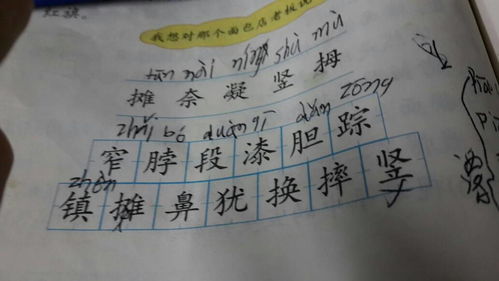 红旗。
我想对那个面包店老板说
tān nài níng shù mǔ
摊奈凝竖拇
zhǎi bó duàn qī dǎn zōng
窄脖段漆胆踪
zhèn
镇摊鼻犹换摔竖